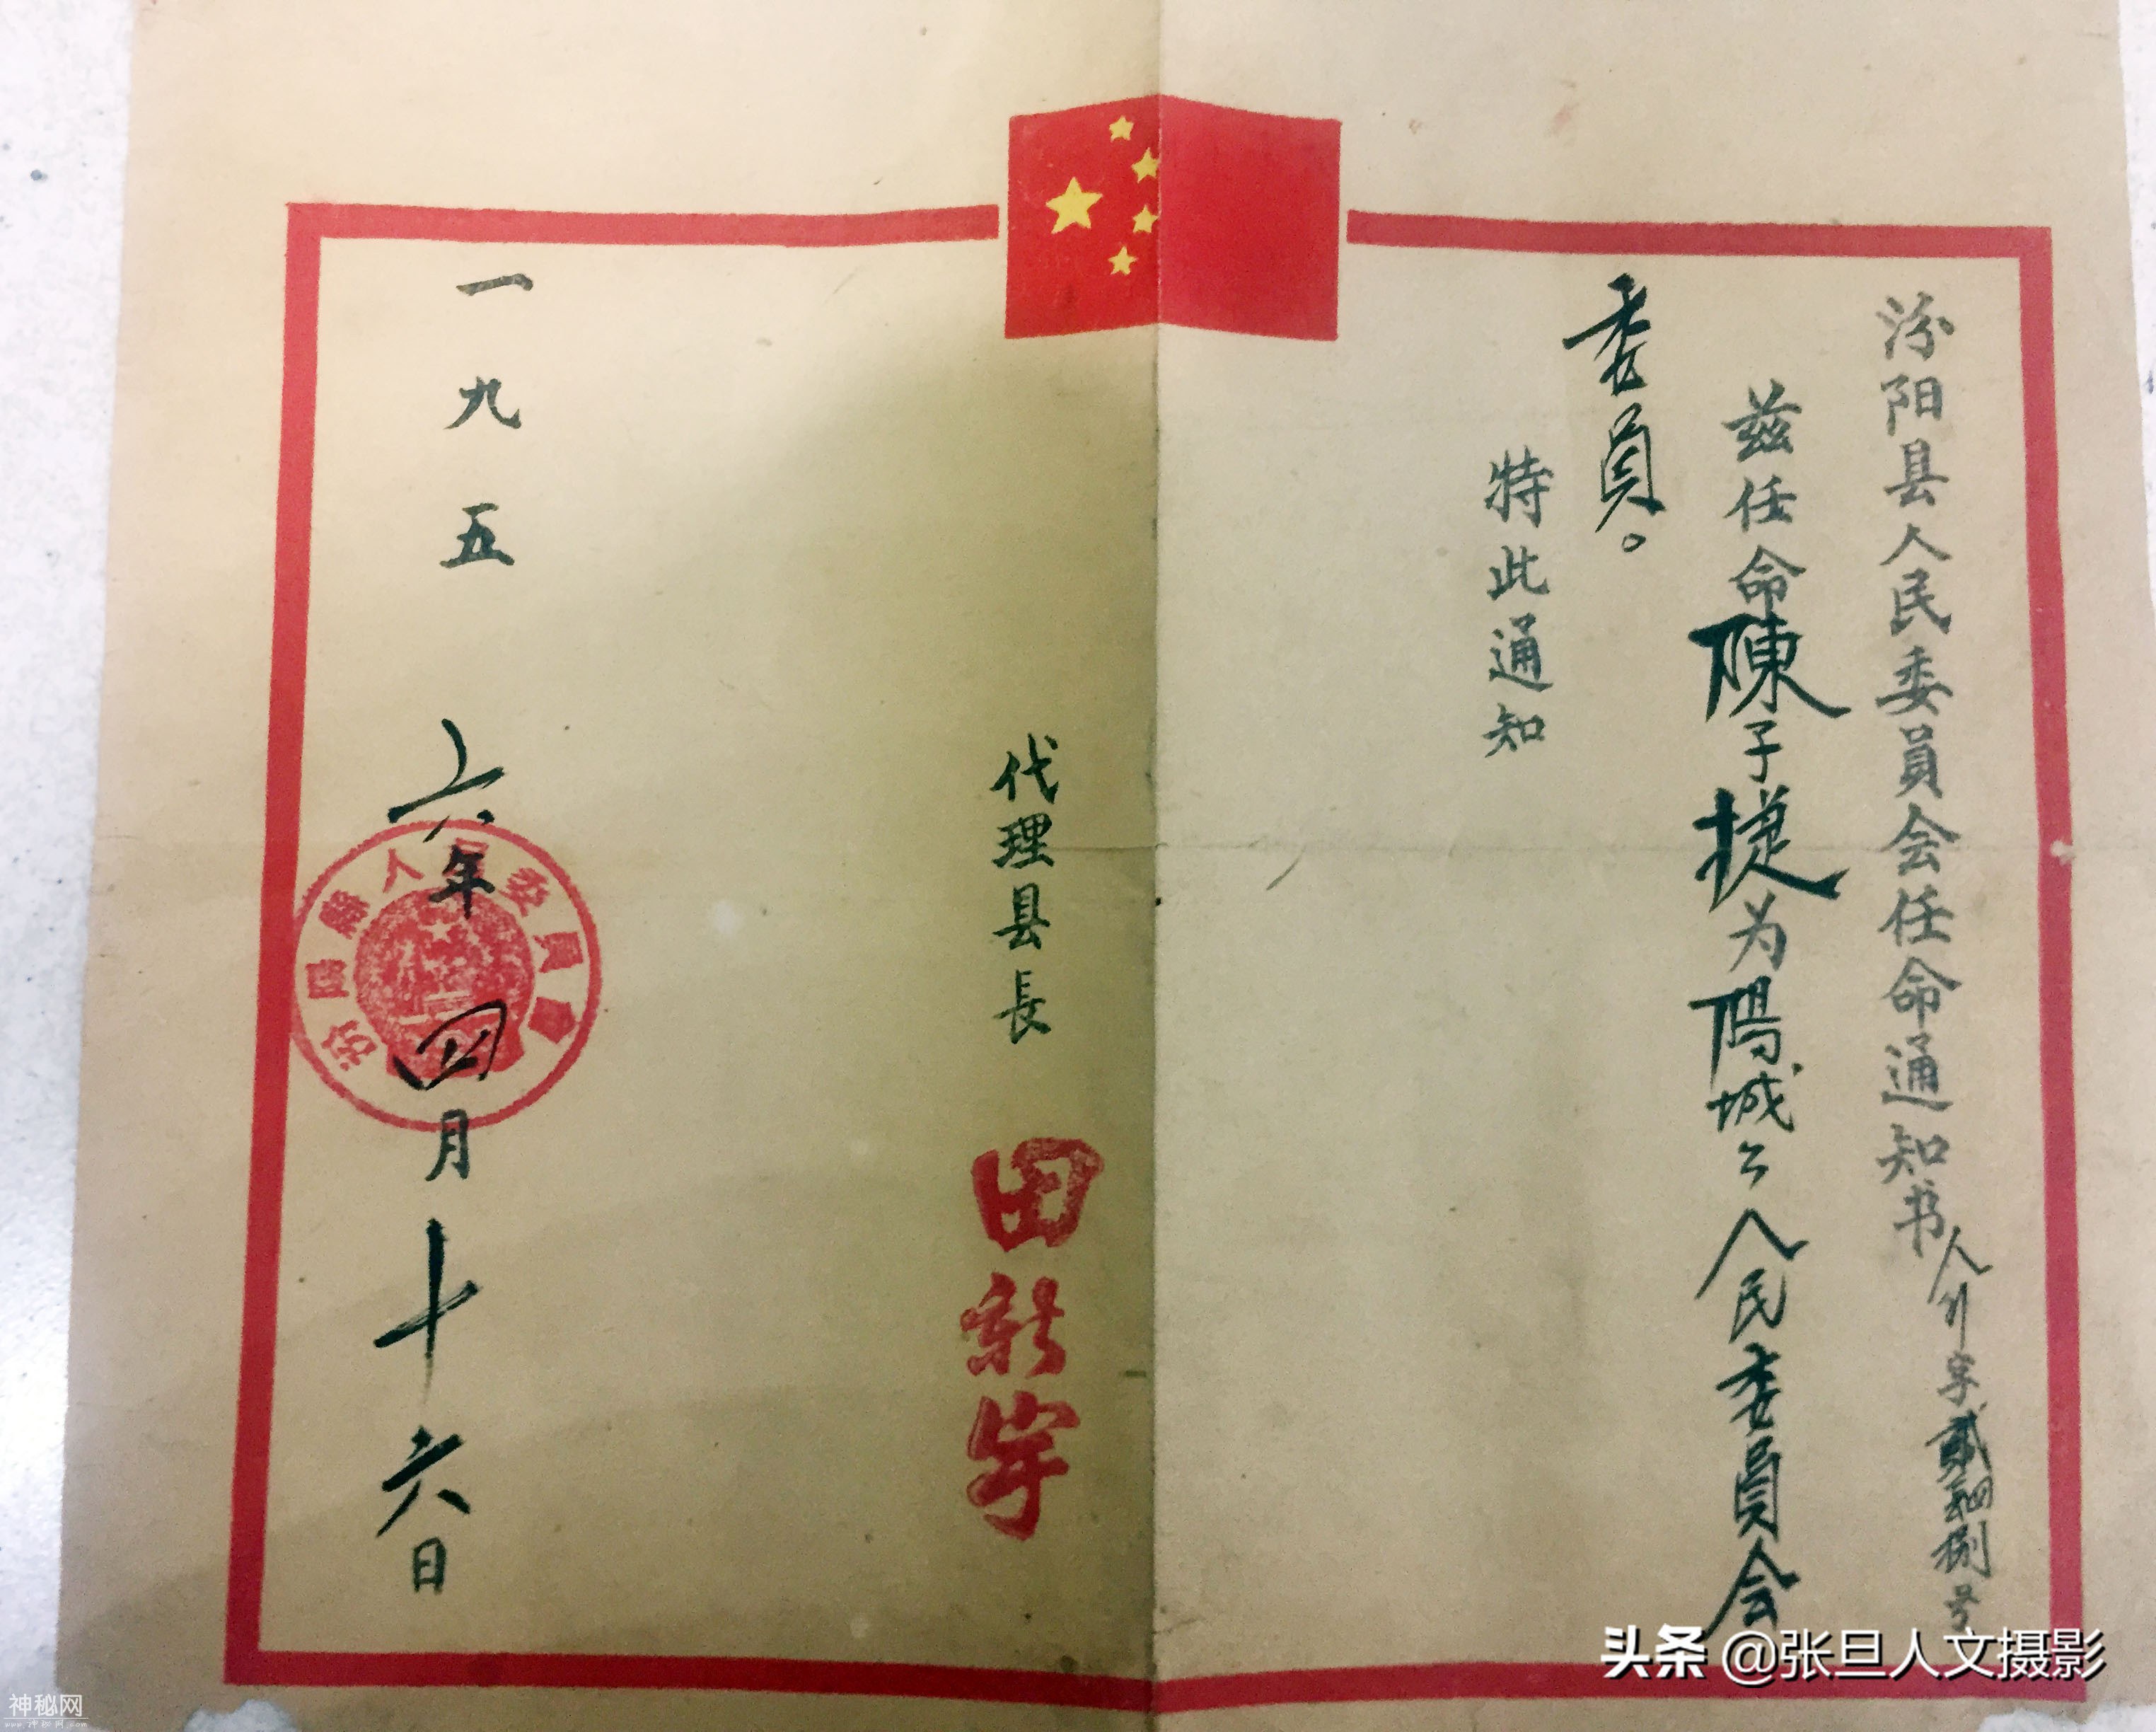 汾阳县人民委員会任命通知书
人介字貳肆捌号
兹任命陳子捷为陽城乡人民委員会
委員。
特此通知
代理县長
田新宇
一九五六年四月十六日
汾陽縣人民委員會
头条 @张旦人文摄影
神秘网